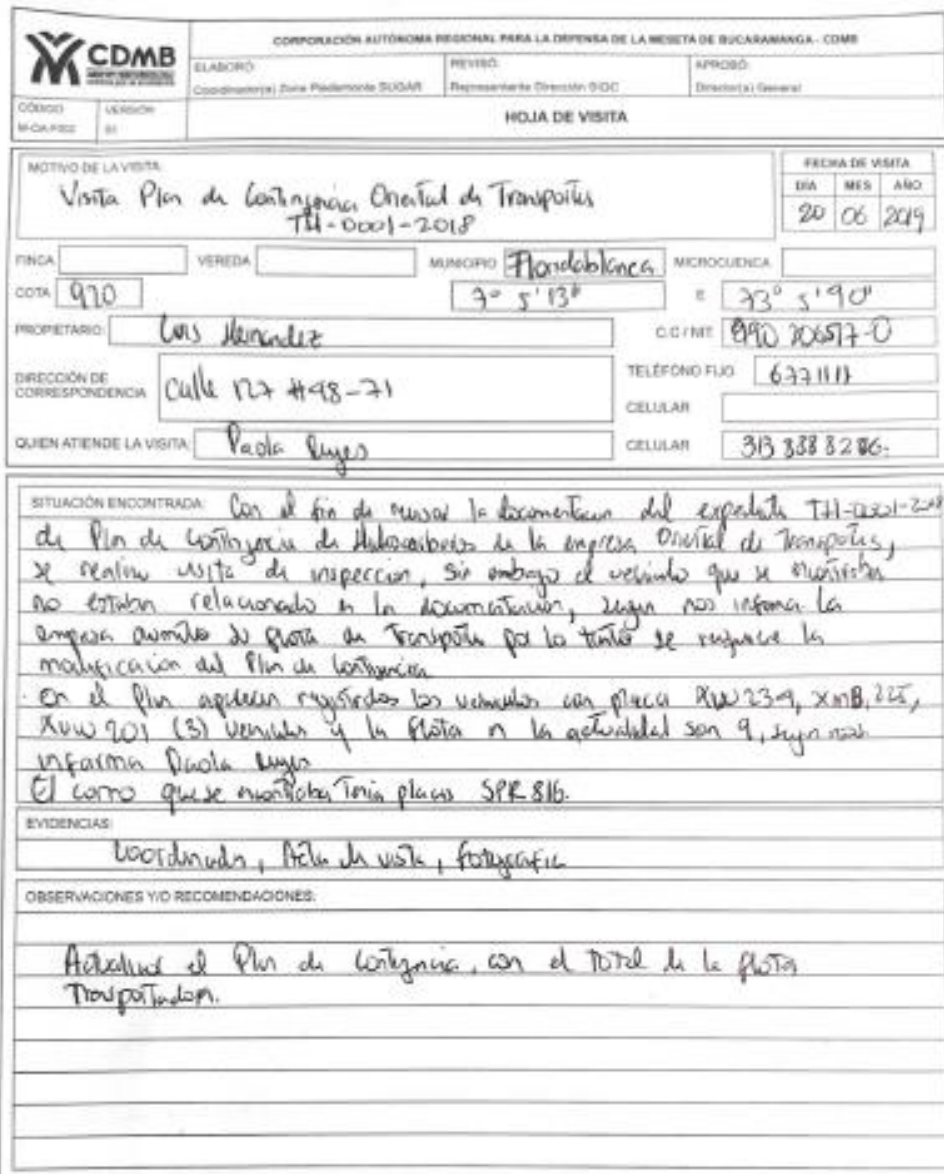 CDMB
CORPORACIÓN AUTÓNOMA REGIONAL PARA LA DEFENSA DE LA MESETA DE BUCARAMANGA - CDMB
ELABORÓ: REVISÓ: APROBÓ:
Coordinador(a) Zona Piedemonte SUGAR Representante Dirección SIGC Director(a) General
CÓDIGO VERSIÓN
M-GA-F002 01
HOJA DE VISITA
MOTIVO DE LA VISITA:
Visita Plan de Contingencia Oriental de Transportes
TH-0001-2018
FECHA DE VISITA
DÍA MES AÑO
20 06 2019
FINCA VEREDA MUNICIPIO Floridablanca MICROCUENCA
COTA 920 7° 5' 13" E 73° 5' 90"
PROPIETARIO: Luis Hernandez C.C / NIT: 206517-0
DIRECCIÓN DE CORRESPONDENCIA Calle 127 #48-71 TELÉFONO FIJO 6771111
CELULAR
QUIEN ATIENDE LA VISITA: Paola Reyes CELULAR 313 888 8286.
SITUACIÓN ENCONTRADA: Con el fin de revisar la documentacion del expediente TH-0001-2018
de Plan de Contingencia de Hidrocarburos de la empresa Oriental de Transportes,
se realizo visita de inspeccion, sin embargo el vehiculo que se encontraba
no estaba relacionado en la documentacion, segun nos informa la
empresa aumento su flota de Transporte por lo tanto se requiere la
modificacion del Plan de Contingencia
en el Plan aparecen registrados los vehiculos con placa XVW 234, XMB 225,
XVW 201 (3) vehiculos y la flota en la actualidad son 9, segun nos
informa Paola Reyes
El carro que se encontraba Tenia placas SPR 816.
EVIDENCIAS:
Coordenadas, Acta de visita, fotografia
OBSERVACIONES Y/O RECOMENDACIONES:
Actualizar el Plan de Contingencia, con el total de la flota
Transportadora.